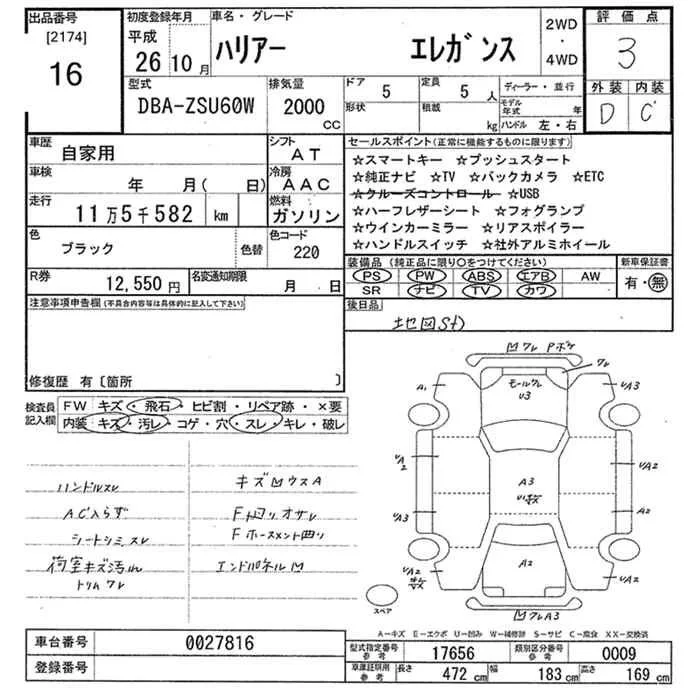 出品番号 初度登録年月 車名・グレード 2WD 評価点
[2174] 平成 ハリアー エレガンス ・ 3
16 26 10月 4WD
型式 排気量 ドア 5 定員 5人 ディーラー・並行 外装 内装
DBA-ZSU60W 2000CC 形状 積載 kg モデル年式 年 D C
ハンドル 左・右
車歴 自家用 シフト AT セールスポイント(正常に機能するものに限ります)
車検 年 月( 日) 冷房 AAC ☆スマートキー ☆プッシュスタート
☆純正ナビ ☆TV ☆バックカメラ ☆ETC
走行 11万5千582 km 燃料 ガソリン ☆クルーズコントロール ☆USB
☆ハーフレザーシート ☆フォグランプ
色 ブラック 色替 色コード 220 ☆ウインカーミラー ☆リアスポイラー
☆ハンドルスイッチ ☆社外アルミホイール
R券 12,550円 名変通知期限 月 日 装備品(純正品に限り○をつけてください) 新車保証書
PS PW ABS エアB AW 有・無
SR ナビ TV カワ
注意事項申告欄(不具合内容等は具体的に記入して下さい) 後日品
地図SD
修復歴 有〔箇所 〕
検査員記入欄 FW キズ・飛石・ヒビ割・リペア跡・×要
内装 キズ・汚レ・コゲ・穴・スレ・キレ・破レ
ハンドルスレ
ACハラズ
シートシミスレ
荷室キズ汚れ
トリムワレ
キズ凹ウスA
F回りオサレ
Fホースメント曲り
エンドパネル凹
凹ワレ Pボケ
ワレ
モールワレ
U3
A1 UA3
UA2 A3 UA2
UA3 A2
UA2 A2 UA2
凹ワレA3
スペア
A-キズ E-エクボ U-凹み W-補修跡 S-サビ C-腐食 XX-交換済
車台番号 0027816 型式指定番号 参考 17656 類別区分番号 参考 0009
登録番号 車庫証明用 参考 長さ 472cm 幅 183cm 高さ 169cm